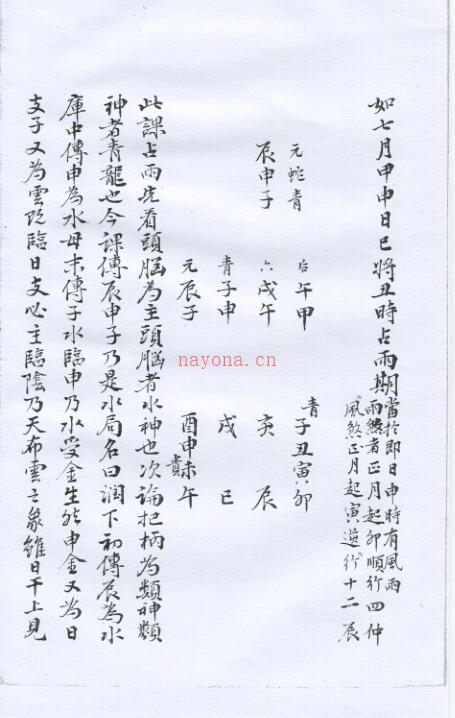 如七月甲申日巳將丑時占雨期
當於即日申時有風雨
雨煞者正月起卯順行四仲
風煞正月起寅逆行十二辰
元蛇青
辰申子
后午甲
六戌午
青子申
元辰子
青
子丑寅卯
亥 辰
戌 巳
酉申未午
貴
此課占雨先看頭腦為主頭腦者水神也次論把柄為類神類
神者青龍也今課傳辰申子乃是水局名曰润下初傳辰為水
庫中傳申為水母末傳子水臨申乃水受金生然申金又為日
支子又為雲既臨日支必主臨陰乃天布雲之象雖日干上見
nayona.cn